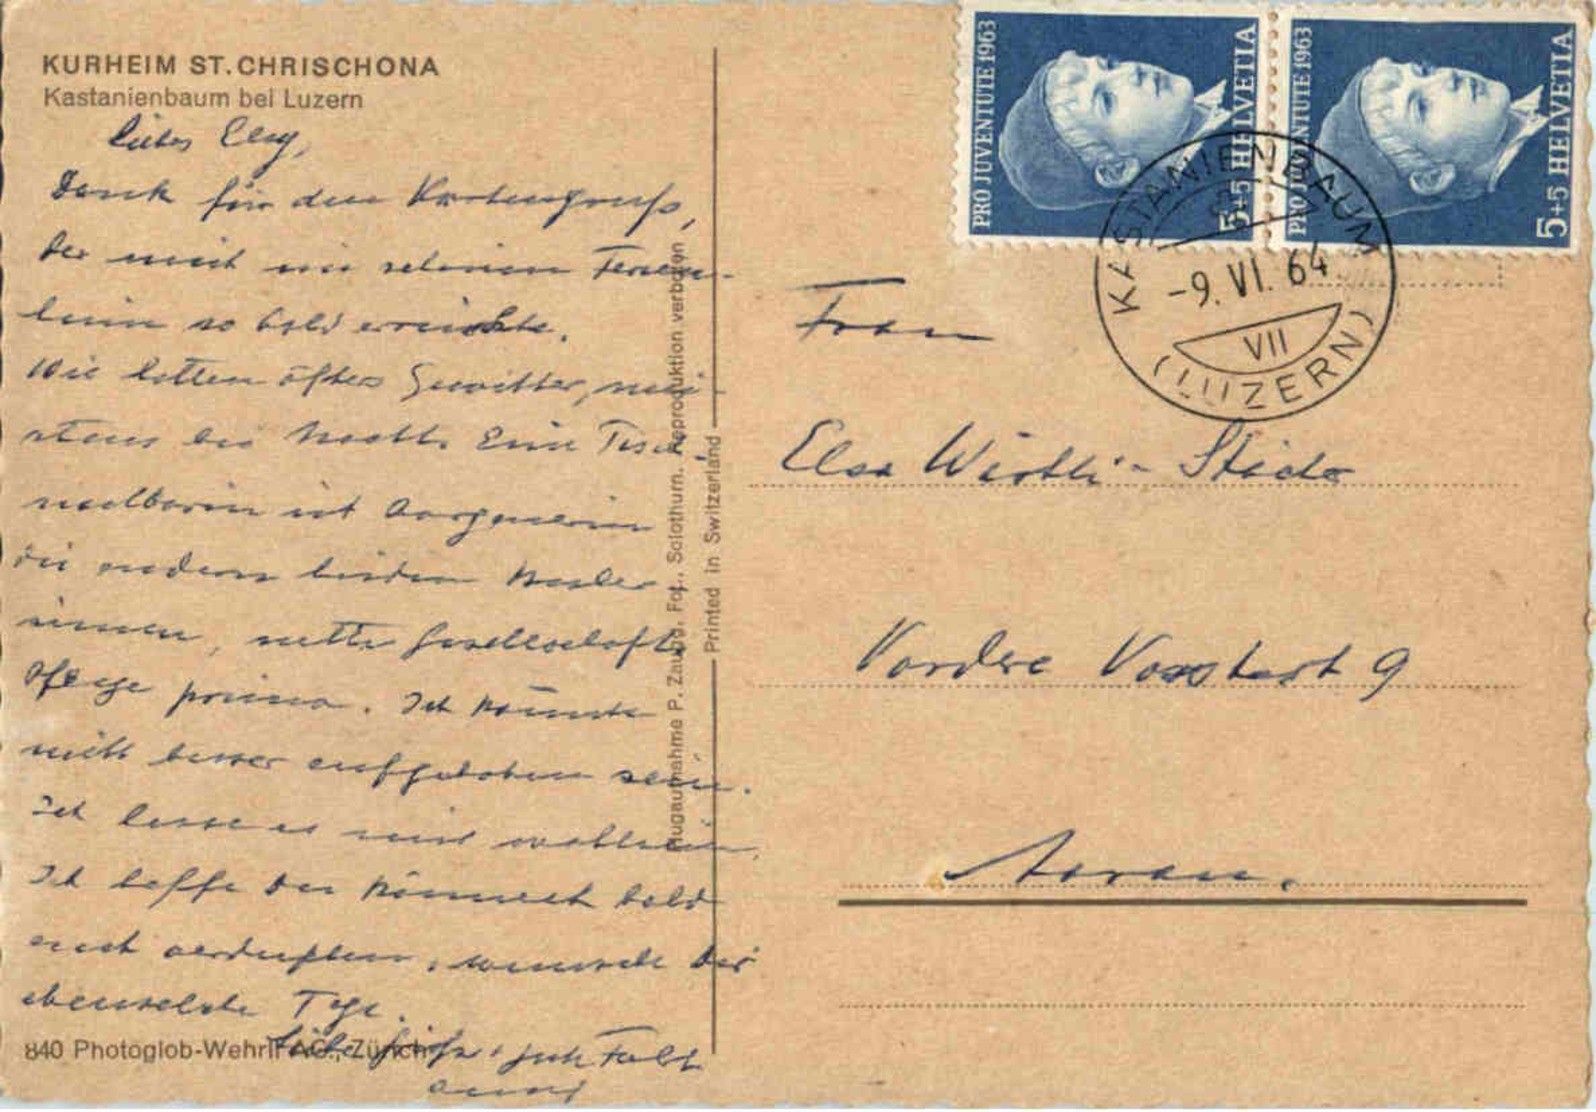 KURHEIM ST. CHRISCHONA
Kastanienbaum bei Luzern
Liebes Elsy,
Dank für den Kartengruss,
der mich im schönen Ferien-
heim so bald erreichte.
Wir hatten öfters Gewitter, mei-
stens bei Nacht. Eine Tisch-
nachbarin ist Aargauerin
die andern beiden Basler
innen, nette Gesellschaft,
Pflege prima. Ich könnte
nicht besser aufgehoben sein.
Ich lasse es mir wohl sein.
Ich hoffe Du bald
auch, wünsche Dir
ebensolche Tage.
Liebe Grüsse
840 Photoglob-Wehrli AG., Zürich
Flugaufnahme P. Zaugg, Fot., Solothurn. Reproduktion verboten
Printed in Switzerland
PRO JUVENTUTE 1963
5+5 HELVETIA
PRO JUVENTUTE 1963
5+5 HELVETIA
KASTANIENBAUM
-9. VI. 64
VII
(LUZERN)
Frau
Elsa
Vordere Vorstadt 9
Aarau.